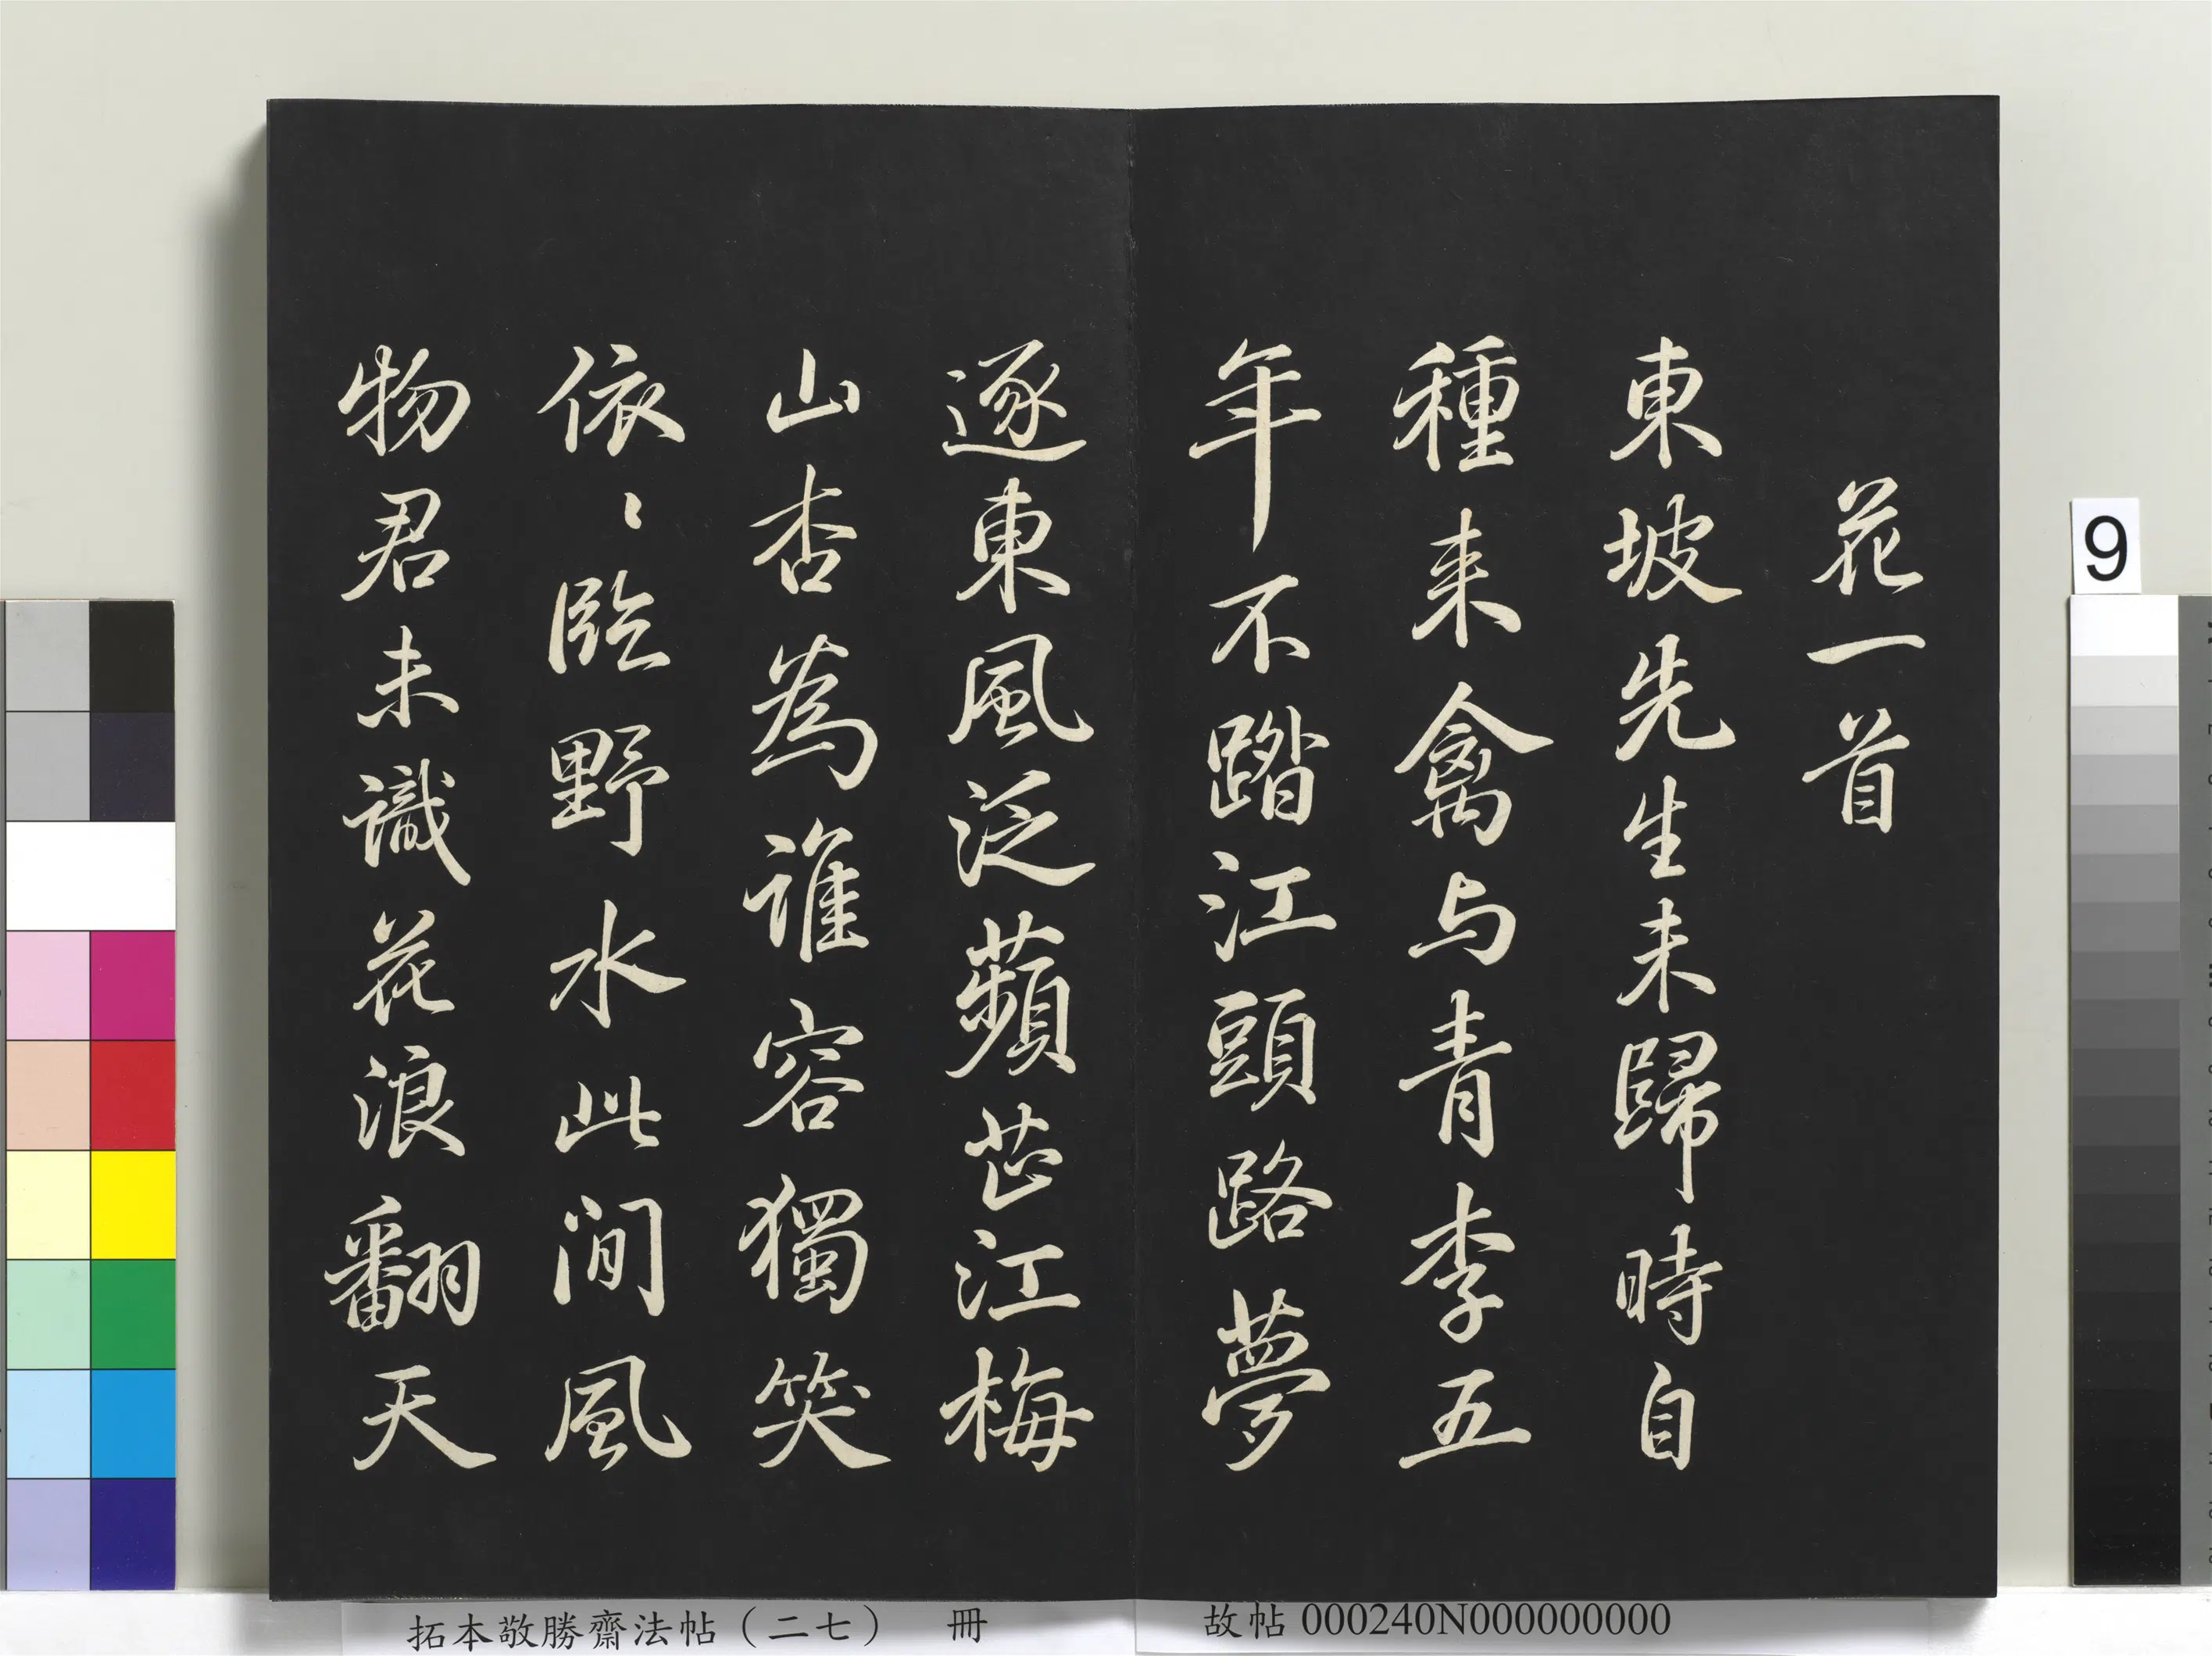 花一首
東坡先生未歸時自
種来禽与青李五
年不踏江頭路夢
逐東風泛蘋芷江梅
山杏為誰容獨笑
依〻臨野水此間風
物君未識花浪翻天
9
拓本敬勝齋法帖（二七） 冊
故帖 000240N000000000